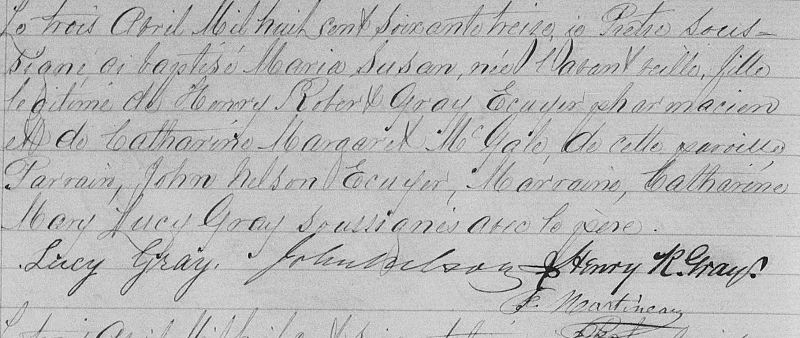 Le trois Avril Mil huit cent soixante treize, je Prêtre sous-
signé, ai baptisé Maria Susan, née l'avant veille, fille
legitime de Henry Robert Gray Ecuyer pharmacien
et de Catharine Margaret McGale, de cette paroisse
Parrain, John Nelson Ecuyer, Marraine, Catharine
Mary Lucy Gray soussignés avec le père.
Lucy Gray. John Nelson Henry R. Gray.
F. Martineau
Le trois Avril Mil huit cent